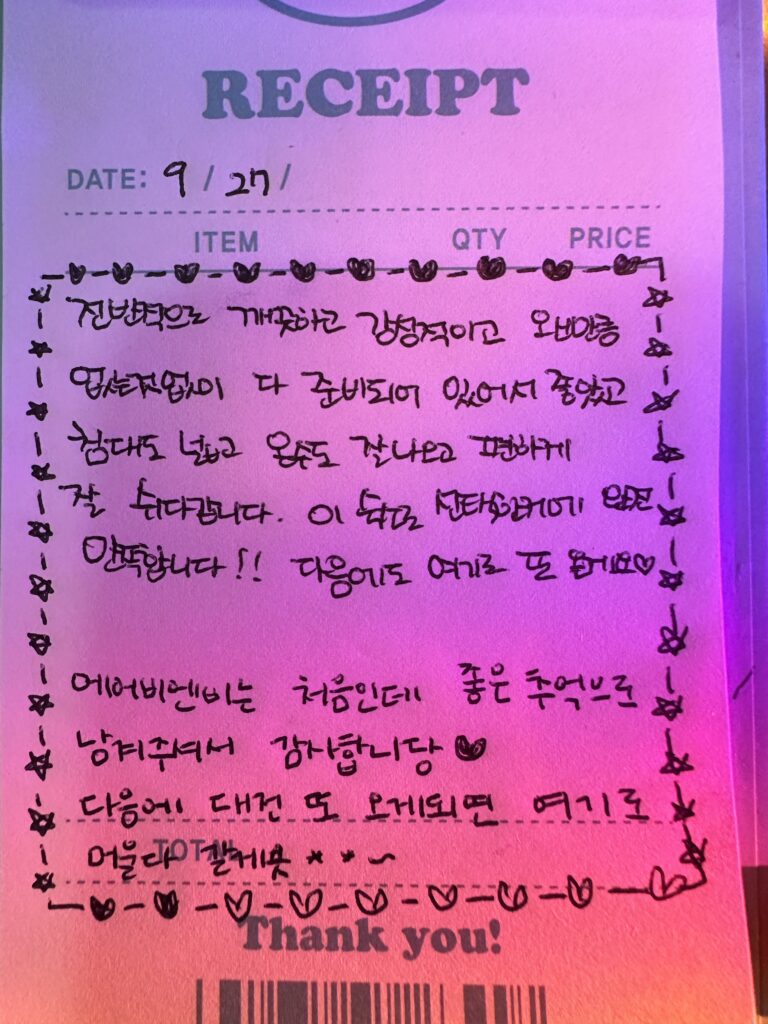 RECEIPT
DATE: 9 / 27 /
ITEM QTY PRICE
전반적으로 깨끗하고 감성적이고
없는것없이 다 준비되어 있어서 좋았고
침대도 넓고 온수도 잘나오고 편하게
잘 쉬다갑니다. 이 숙소 선택한거에 완전
만족합니다!! 다음에도 여기로 또 올게요♡
에어비엔비는 처음인데 좋은 추억으로
남겨주셔서 감사합니당 ♥
다음에 대전 또 오게되면 여기로
머물다 갈게욧 * * ~
TOTAL
Thank you!